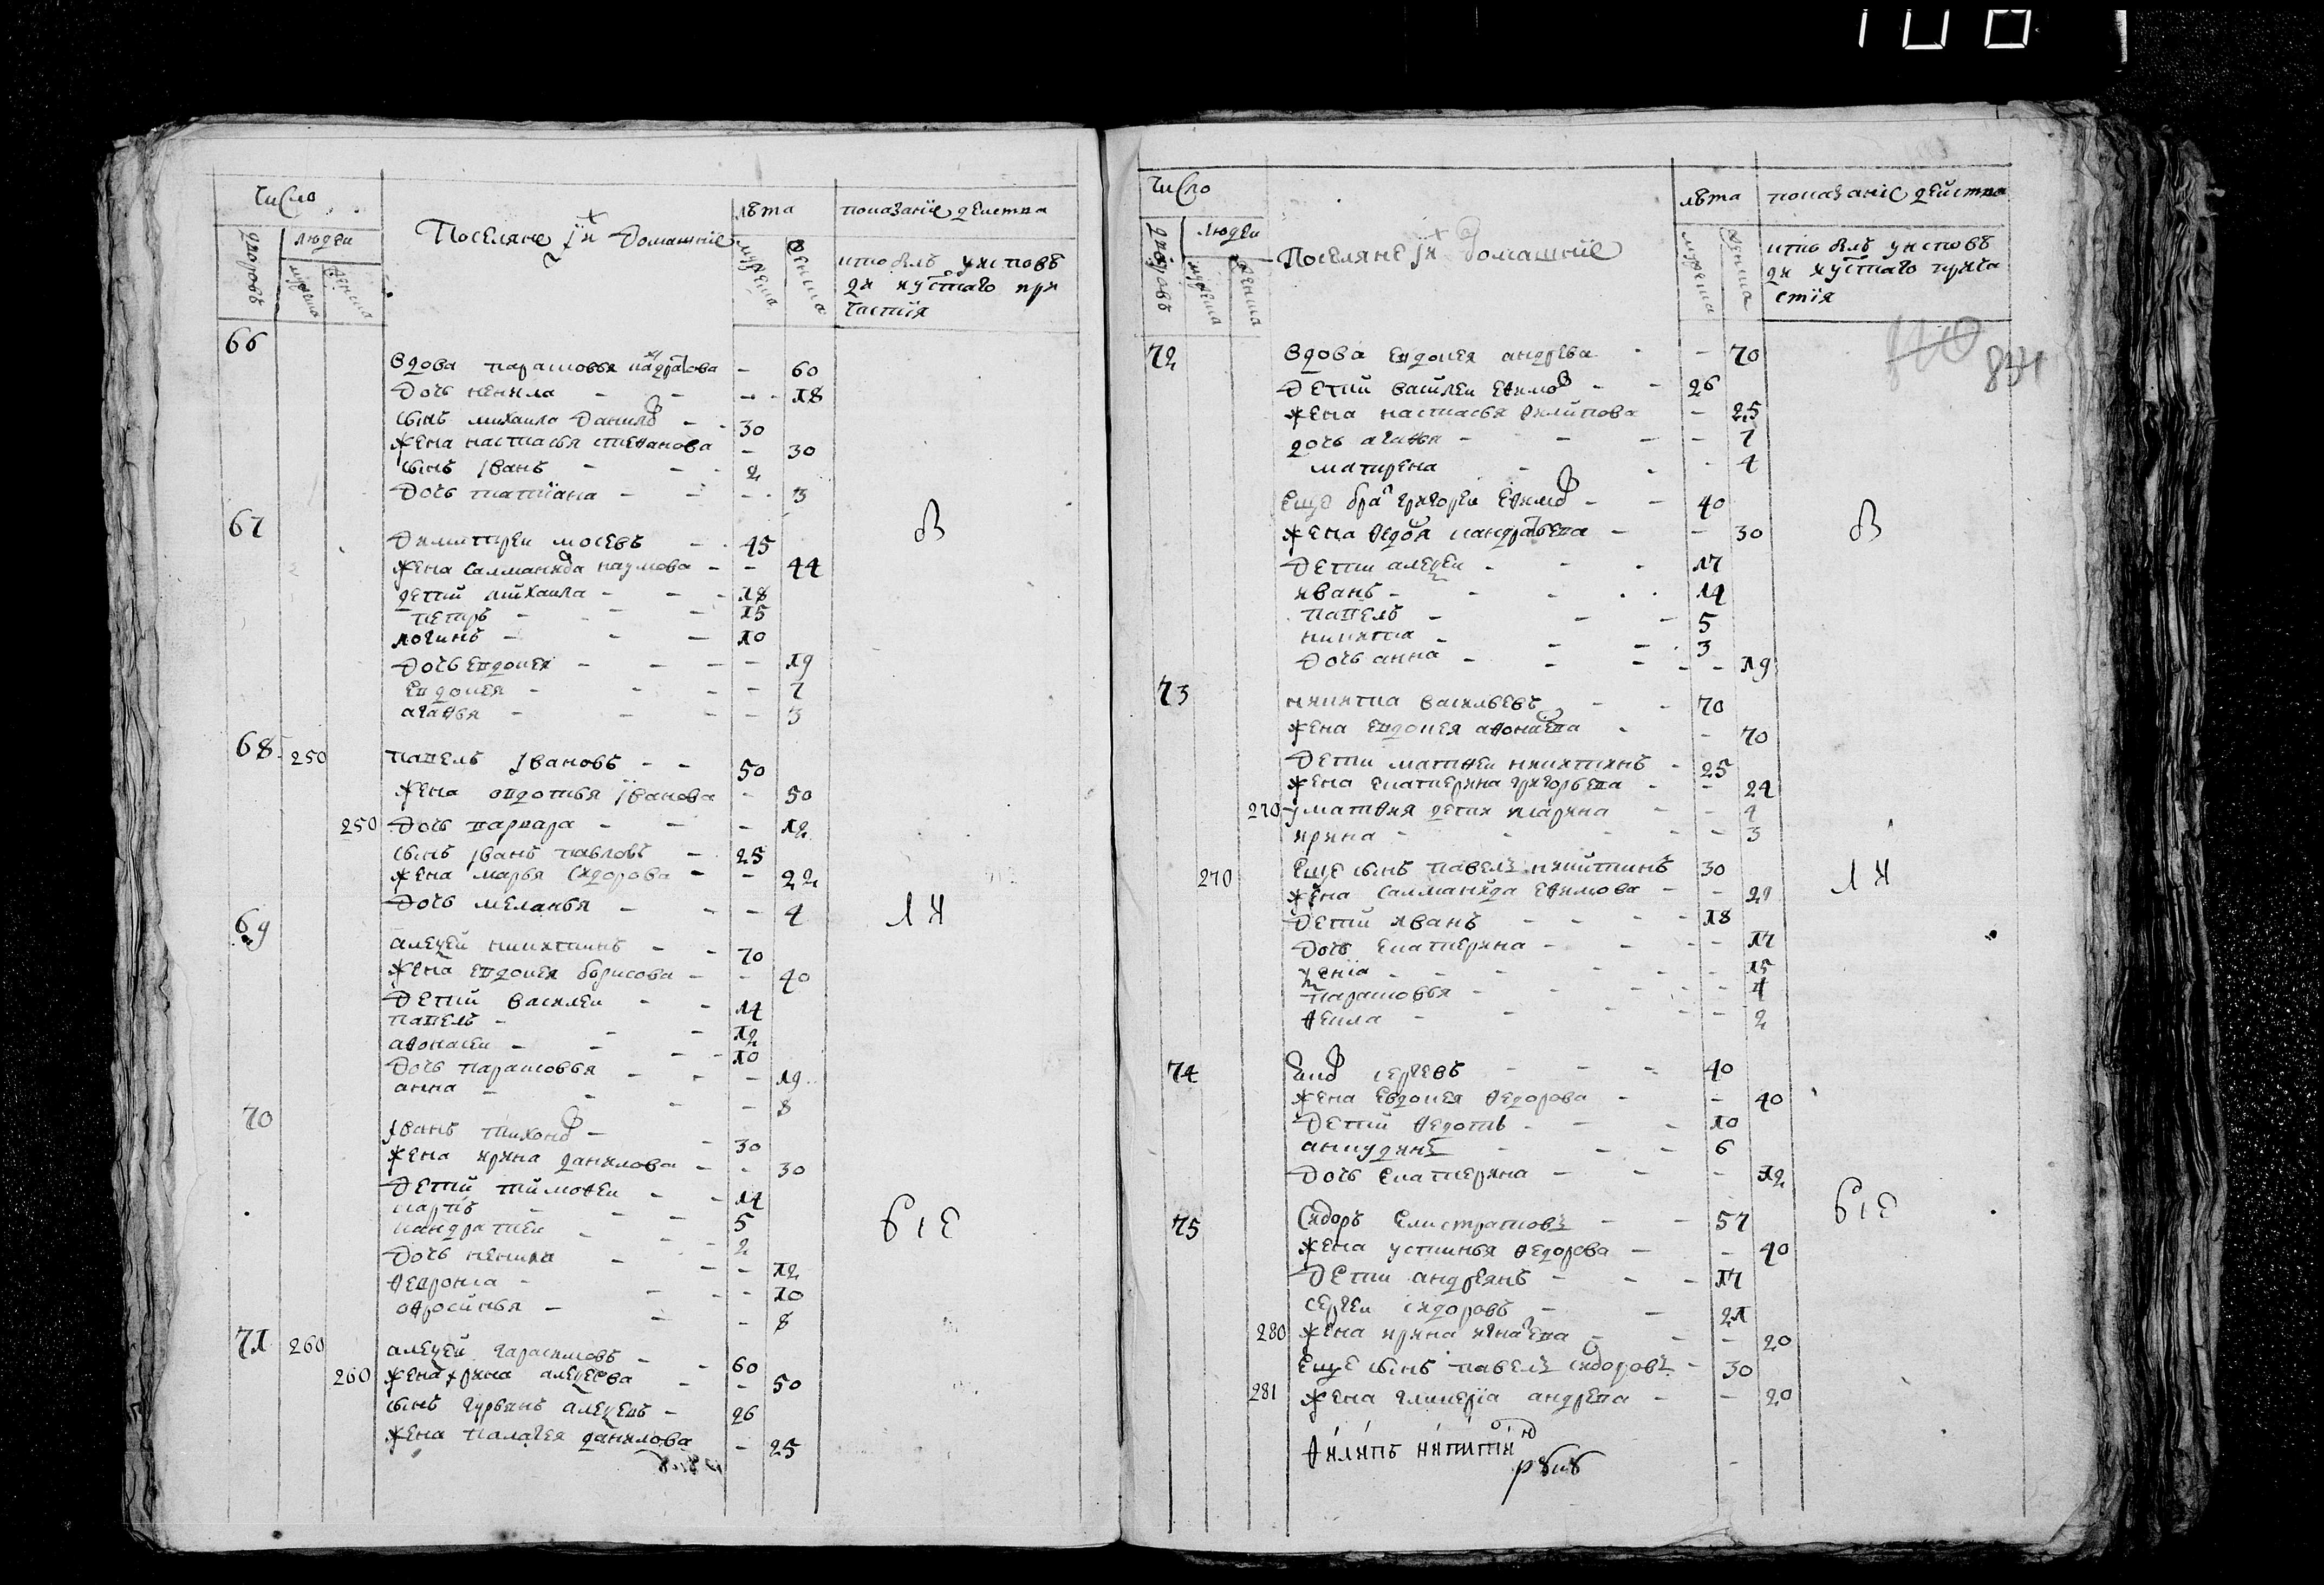 100
Число
Поселяне їи Домашнїе
лѣта
показанїе действа
дворовъ
людеи
мужеска
женска
мужеска
женска
кто былъ у исповѣ
ди и у с͠таго при
частїя
66
Вдова парасковья кандратова - 60
Дочь ненила - - - - 18
сынъ михаила Данилов - - 30
жена настасья степанова - 30
сынъ Ӏванъ - - - 2
Дочь татїана - - - - 3
67
Димитреи мосевъ - - 45
жена саламанида наумова - - 44
детий михаила - - - 18
петръ - - - 15
логинъ - - - 10
Дочь евдокея - - - - 19
Евдокея - - - - 7
агафья - - - - 3
В
68 250
павелъ Ӏвановъ - - 50
жена овдотья Ӏванова - 50
250 Дочь варвара - - - 12
сынъ Ӏванъ павловъ - 25
жена марья сидорова - - 22
Дочь меланья - - - 4
69
алексей никитинъ - - 70
жена евдокея борисова - - 40
Детий василеи - - 14
павелъ - - - 12
афонасеи - - - 10
Дочь парасковья - - - 19
анна - - - - 8
Л И
70
Ӏванъ тихонов - - 30
жена ирина данилова - - 30
Детий тимофеи - - 14
карпъ - - - 5
кандратеи - - - 2
Дочь ненила - - - 12
февронia - - - 10
офросинья - - - 8
71 260
алексеи гарасимовъ - - 60
260 жена ирина алексеева - - 50
сынъ гурьянъ алексеевъ - 26
жена палагея данилова - 25
Б І Е
Число
Поселяне їи домашнїе
лѣта
показанїе действа
дворовъ
людеи
мужеска
женска
мужеска
женска
кто былъ у исповѣ
ди и у с͠таго прича
стїя
834
72
Вдова Евдокея андреева - - 70
Детий василеи Ефимов - - 26
жена настасья филипова - 25
дочь агафья - - - - 7
матрена - - - 4
Еще брат григореи Ефимов - - 40
жена федося кандратьева - - 30
Детии алексеи - - - 17
иванъ - - - - 14
павелъ - - - 5
никита - - - 3
Дочь анна - - - - - 19
В
73
никита васильевъ - - 70
жена Евдокея афонасева - - 70
Детии матвеи никитинъ - 25
жена екатерина григорьева - - 24
270 у матфия детии марина - - 4
ирина - - - - - 3
270 Еще сынъ павелъ никитинъ 30
жена саламанида Ефимова - - 29
Детий иванъ - - - - 18
Дочь Екатерина - - - - 17
ксенїа - - - - - 15
парасковья - - - - 4
фекла - - - - 2
Л И
74
сергѣевъ - - - 40
жена Евдокея федорова - - 40
Детий федотъ - - - 10
анкудинъ - - - 6
Дочь Екатерина - - - 12
75
Сидоръ Елистратовъ - - 57
жена устинья федорова - - 40
Детии андреянъ - - - 17
сергеи сидоровъ - - 21
280 жена ирина игнатева - - - 20
Еще сынъ павелъ сидоровъ - 30
281 жена гликерїа андреева - - 20
Б І Е
филипъ никитин